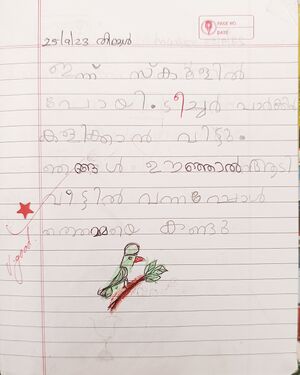 PAGE NO.
DATE
25/9/23 തിങ്കൾ
ഇന്ന് സ്കൂളിൽ
പോയി. ടീച്ചർ പാർക്കിൽ
കളിക്കാൻ വിട്ടു.
ഞങ്ങൾ ഊഞ്ഞാൽ ആടി
വീട്ടിൽ വന്നപ്പോൾ
തത്തമ്മയെ കണ്ടു